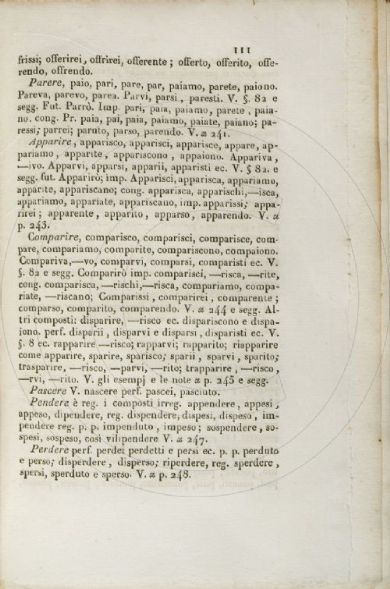 111
frissi; offerirei, offrirei, offerente; offerto, offerito, offe-
rendo, offrendo.
Parere, paio, pari, pare, par, paiamo, parete, paiono.
Pareva, parevo, parea. Parvi, parsi, paresti. V. §. 82 e
segg. Fut. Parrò. Imp. pari, paia, paiamo, parete, paia-
no. cong. Pr. paia, pai, paia, paiamo, paiate, paiano; pa-
ressi; parrei; paruto, parso, parendo. V. 241.
Apparire, apparisco, apparisci, apparisce, appare, ap-
pariamo, apparite, appariscono, appaiono. Appariva,
—ivo. Apparvi, apparsi, apparii, apparisti ec. V. §. 82. e
segg. fut. Apparirò; imp. Apparisci, apparisca, appariamo,
apparite, appariscano; cong. apparisca, apparischi,—isca,
appariamo, appariate, appariscano, imp. apparissi; appa-
rirei; apparente, apparito, apparso, apparendo. V.
p. 243.
Comparire, comparisco, comparisci, comparisce, com-
pare, compariamo, comparite, compariscono, compaiono.
Compariva,—vo, comparvi, comparsi, comparisti ec. V.
§. 82 e segg. Comparirò imp. comparisci, —risca, —rite,
cong. comparisca, —rischi,—risca, compariamo, compa-
riate, —riscano; Comparissi, comparirei, comparente;
comparso, comparito, comparendo. V. 244 e segg. Al-
tri composti: disparire, —risco ec. dispariscono e dispa-
iono. perf. disparii, disparvi e disparsi, disparisti ec. V.
§. 8 ec. rapparire —risco; rapparvi; rapparito; riapparire
come apparire, sparire, sparisco; sparii, sparvi, sparito;
trasparire, —risco, —parvi, —rito; trapparire, —risco,
—rvi, —rito. V. gli esempj e le note p. 245 e segg.
Pascere V. nascere perf. pascei, pasciuto.
Pendere è reg. i composti irreg. appendere, appesi,
appeso, dipendere, reg. dipendere, dispesi, dispeso, im-
pendere reg. p. p. impenduto, impeso; sospendere, so-
spesi, sospeso, così vilipendere V. 247.
Perdere perf. perdei perdetti e persi ec. p. p. perduto
e perso; disperdere, disperso; riperdere, reg. sperdere,
spersi, sperduto e sperso. V. p. 248.